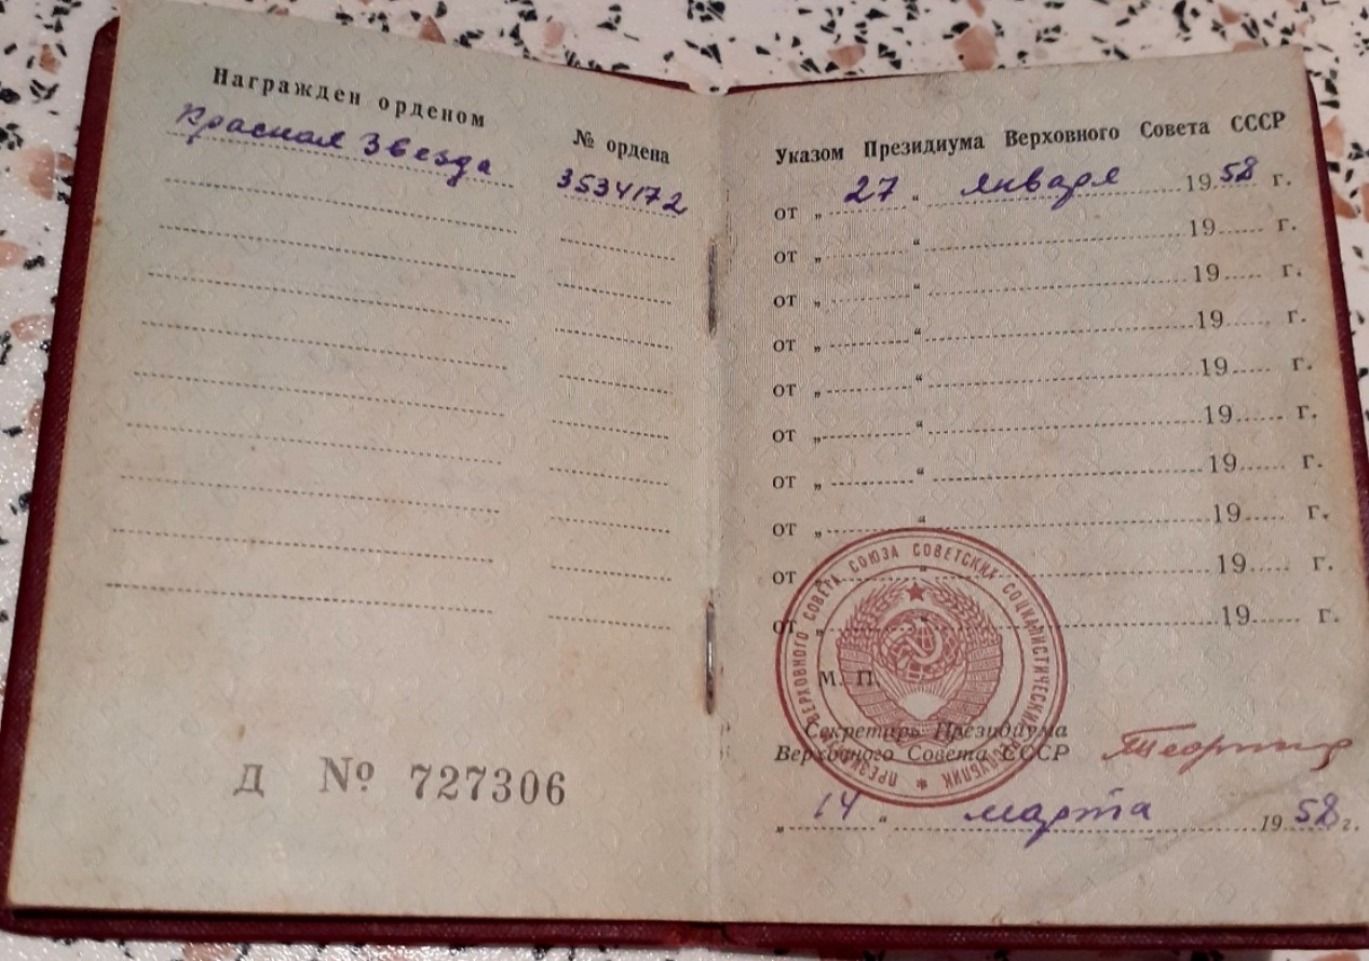 Награжден орденом
№ ордена
Красная Звезда
3534172
Д № 727306
Указом Президиума Верховного Совета СССР
от „ 27 “ января 19 58 г.
от „ “ 19 г.
от „ “ 19 г.
от „ “ 19 г.
от „ “ 19 г.
от „ “ 19 г.
от „ “ 19 г.
от „ “ 19 г.
от „ “ 19 г.
от „ “ 19 г.
ПРЕЗИДИУМ ВЕРХОВНОГО СОВЕТА СОЮЗА СОВЕТСКИХ СОЦИАЛИСТИЧЕСКИХ РЕСПУБЛИК
М. П.
Секретарь Президиума
Верховного Совета СССР
„ 14 “ марта 19 58 г.